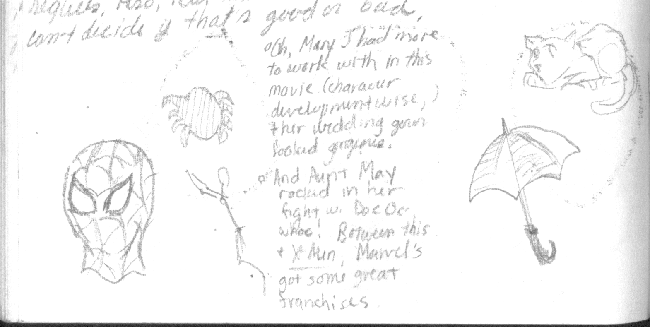 sequels. Also,
can't decide if that's good or bad.
Oh, Mary J had more
to work with in this
movie (character
developmentwise,)
& her wedding gown
looked gorgeous.
And Aunt May
rocked in her
fight w. Doc Oc
whoo! Between this
+ X-Men, Marvel's
got some great
franchises.